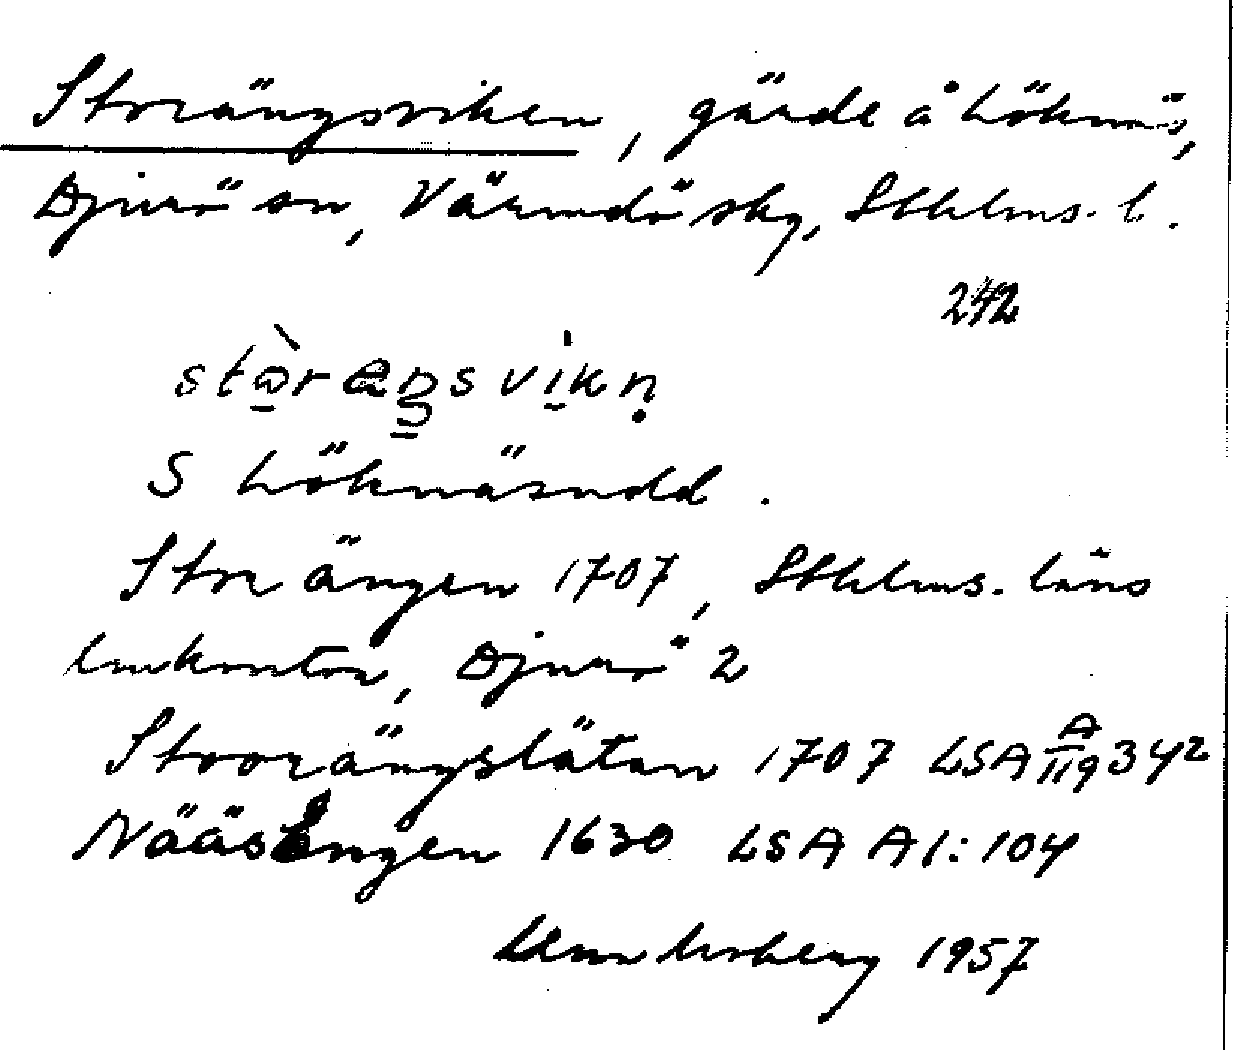 Storängsviken, gärde å Löknäs,
Djurö sn, Värmdö sky, Sthlms. l.
242
stòrængsvikn̥
S Löknäsudd.
Stor ängen 1707, Sthlms. läns
lmkontor, Djurö 2
Stoorängslåtan 1707 LSA A/119 342
NääsEngen 1630 LSA A1:104
1957